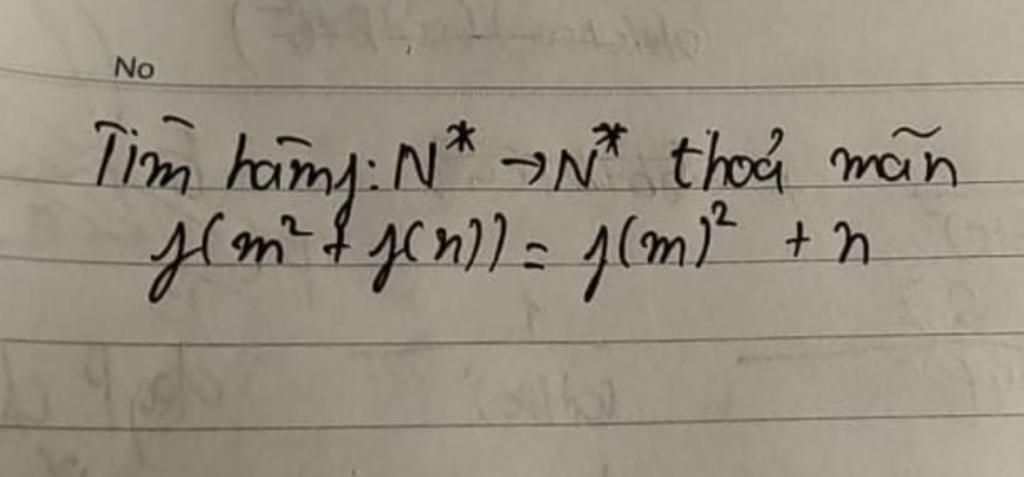 No
Tìm hàm f: N* → N* thoả mãn
f(m² + f(n)) = f(m)² + n